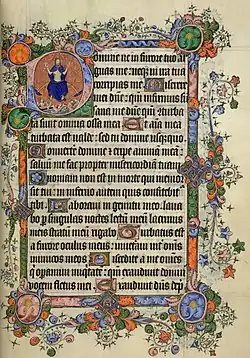 Domine ne in furore tuo ar
guas me: neqz in ira tua
corripias me. Miserere
mei dñe: qm̄ infirmus su
sana me dñe qm̄ ɔturba
ta sunt omnia ossa mea Et aīa mea
turbata est valde: sed tu domine usqzquo.
Convertere domine & eripe animā meā:
salvū me fac propter misericordiā tuam.
Quoniam non est in morte qui memor
sit tui: in inferno autem quis confitebit
tibi. Laboravi in gemitu meo. lava
bo p singulas noctes lectū meū lacrimis
meis stratū meū rigabo. Turbatus est
a furore oculus meus: inveteravi int̄ om̄s
inimicos meos. Discedite a me om̄s
q opamini iniqtatē: qm̄ exaudivit dom̄s
vocem fletus mei. Exaudivit dn̄s dep̄